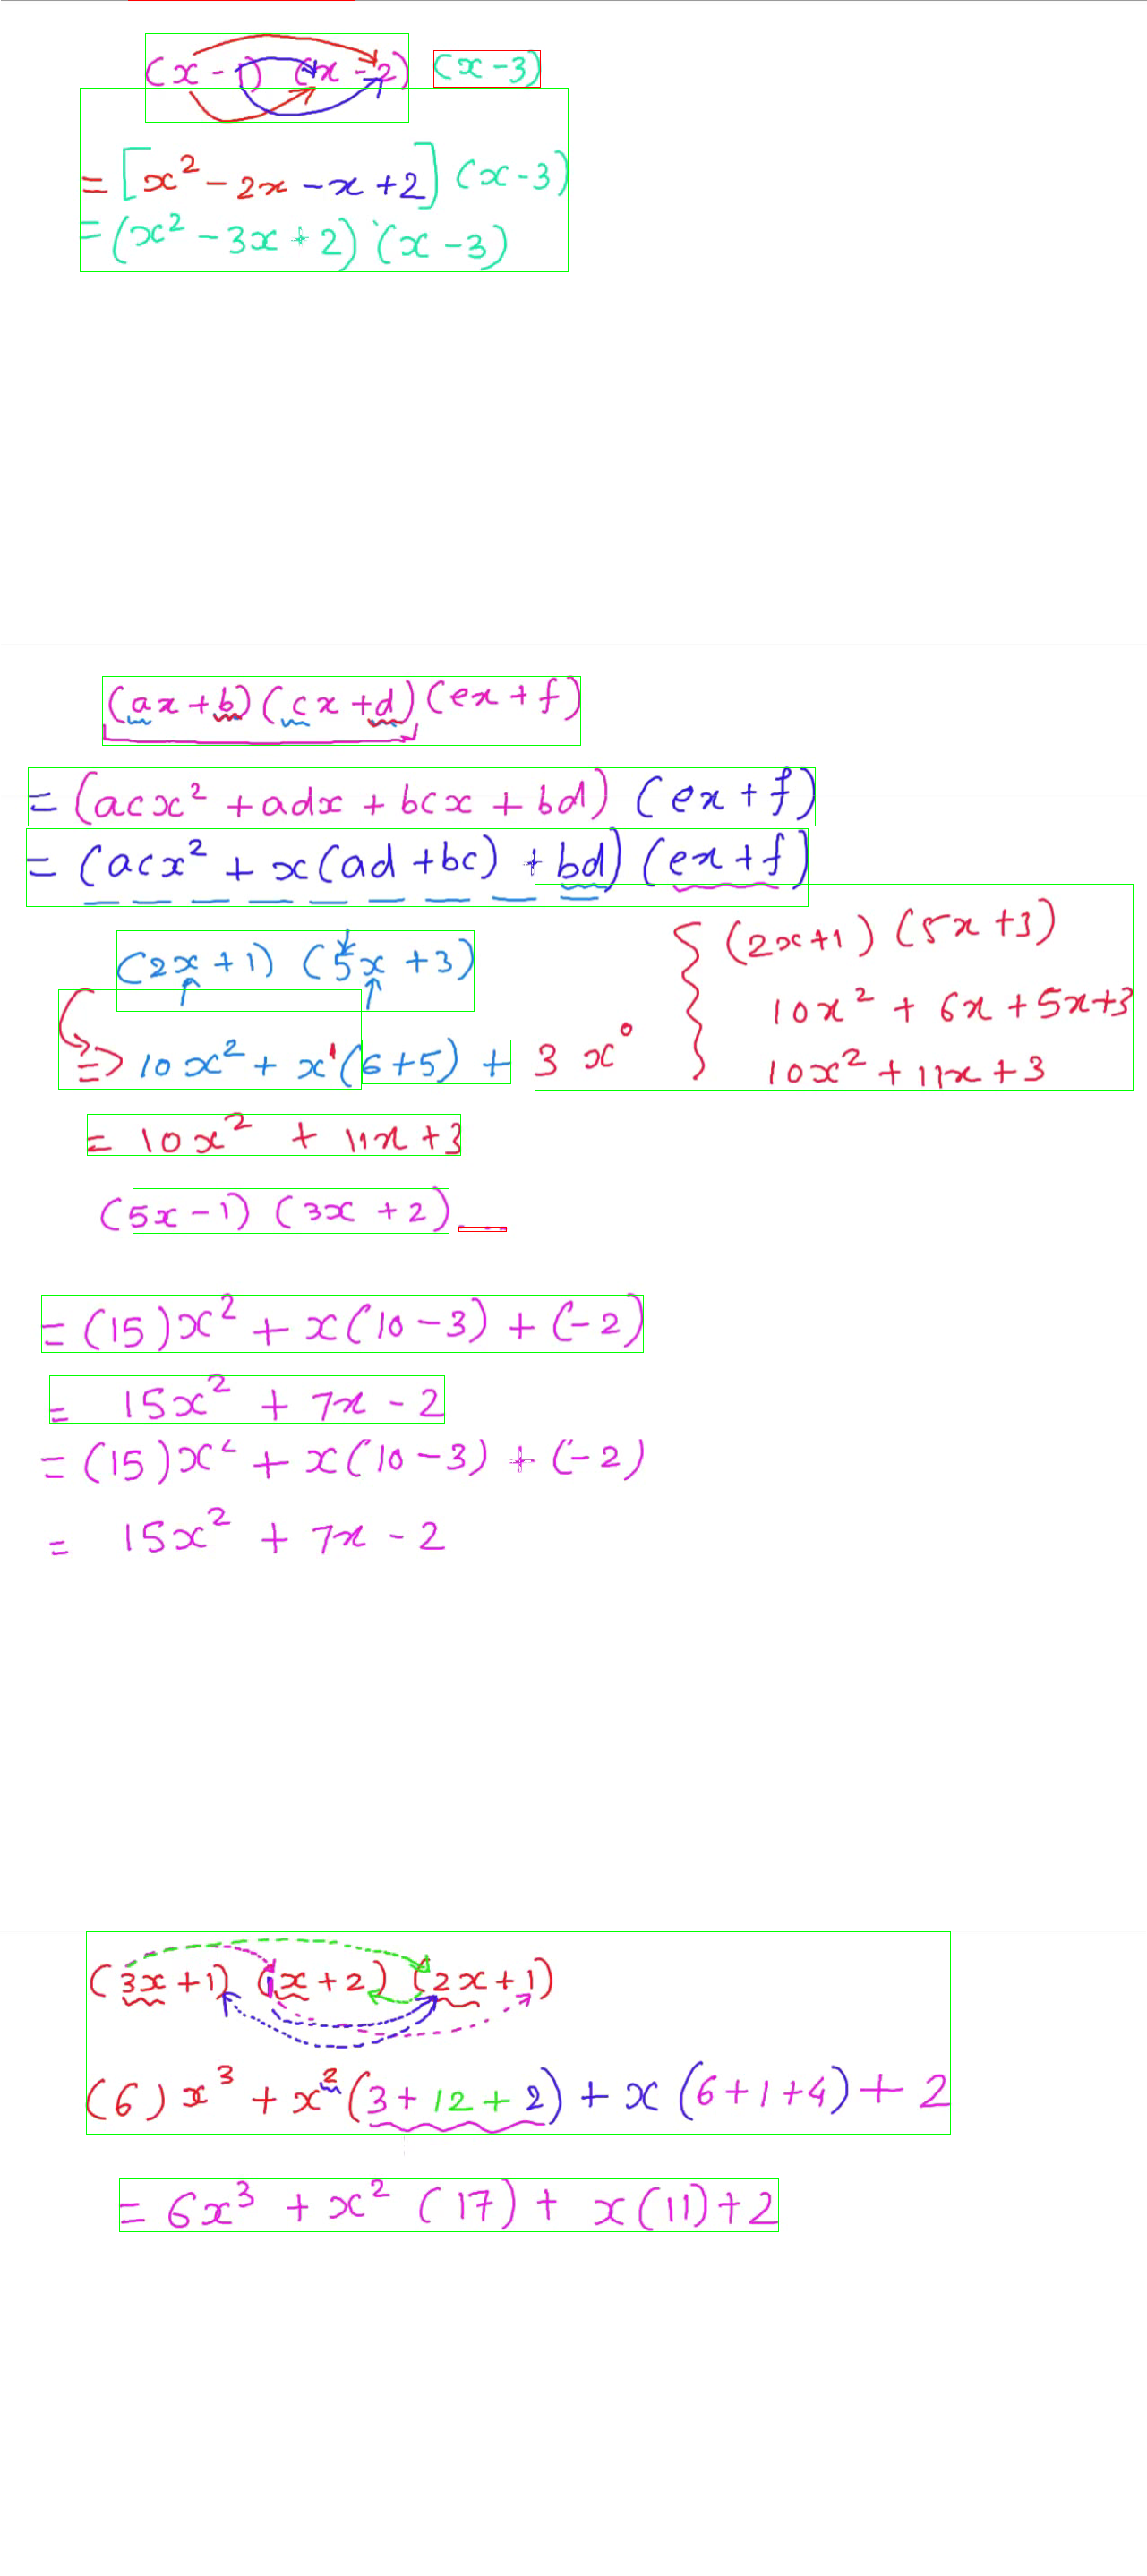 (x - 1) (x - 2) (x - 3)
= [x² - 2x - x + 2] (x - 3)
= (x² - 3x + 2) (x - 3)
(ax + b) (cx + d) (ex + f)
= (acx² + adx + bcx + bd) (ex + f)
= (acx² + x(ad + bc) + bd) (ex + f)
(2x + 1) (5x + 3)
=> 10x² + x¹(6 + 5) + 3x⁰
{ (2x + 1) (5x + 3)
10x² + 6x + 5x + 3
10x² + 11x + 3
= 10x² + 11x + 3
(5x - 1) (3x + 2)
= (15)x² + x(10 - 3) + (-2)
= 15x² + 7x - 2
= (15)x² + x(10 - 3) + (-2)
= 15x² + 7x - 2
(3x + 1) (1x + 2) (2x + 1)
(6)x³ + x²(3 + 12 + 2) + x(6 + 1 + 4) + 2
= 6x³ + x² (17) + x(11) + 2